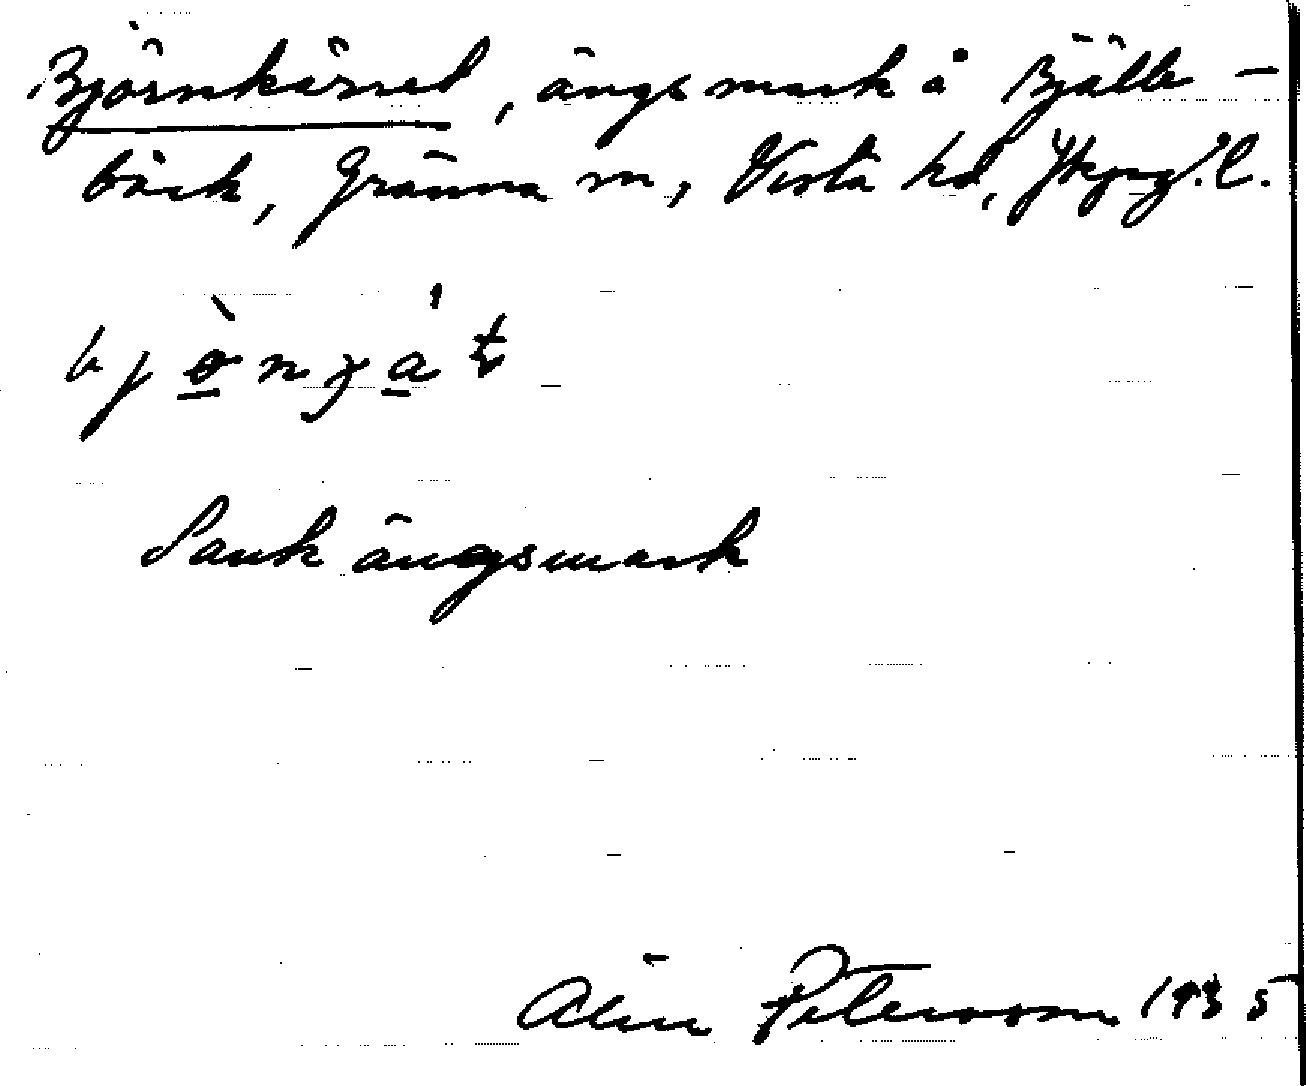 Björnkärret, ängsmark å Bjälle-
bäck, Gränna sn, Vista hd, Jkpgs.l.
Sank ängsmark
Petersson 1935